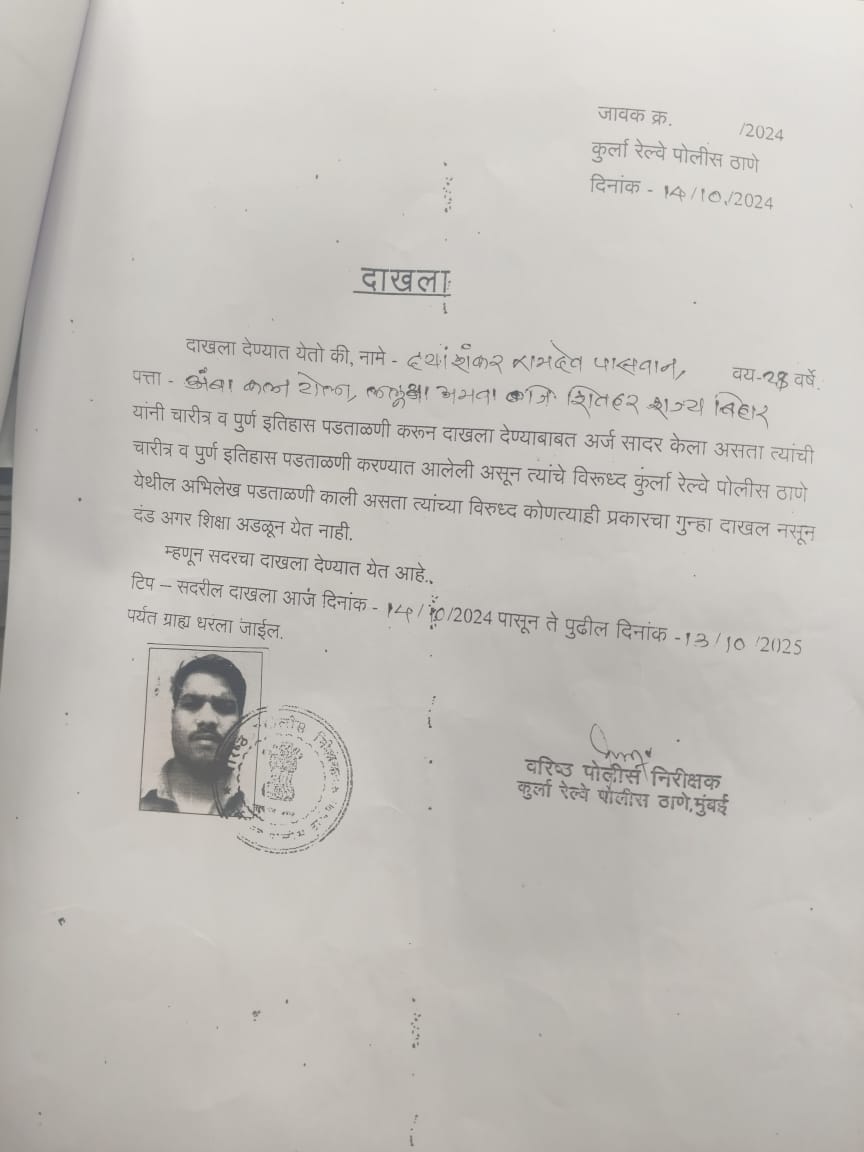 जावक क्र. /2024
कुर्ला रेल्वे पोलीस ठाणे
दिनांक - 14/10/2024
दाखला
दाखला देण्यात येतो की, नामे - दयाशंकर रामदेव पासवान, वय-28 वर्षे.
पत्ता - राज्य बिहार
यांनी चारीत्र व पुर्ण इतिहास पडताळणी करून दाखला देण्याबाबत अर्ज सादर केला असता त्यांची
चारीत्र व पुर्ण इतिहास पडताळणी करण्यात आलेली असून त्यांचे विरूध्द कुंर्ला रेल्वे पोलीस ठाणे
येथील अभिलेख पडताळणी काली असता त्यांच्या विरुध्द कोणत्याही प्रकारचा गुन्हा दाखल नसून
दंड अगर शिक्षा अडळून येत नाही.
म्हणून सदरचा दाखला देण्यात येत आहे..
टिप – सदरील दाखला आज दिनांक - 14/10/2024 पासून ते पुढील दिनांक -13/10/2025
पर्यत ग्राह्य धरला जाईल.
वरिष्ठ पोलीस निरीक्षक
कुर्ला रेल्वे पोलीस ठाणे,मुंबई